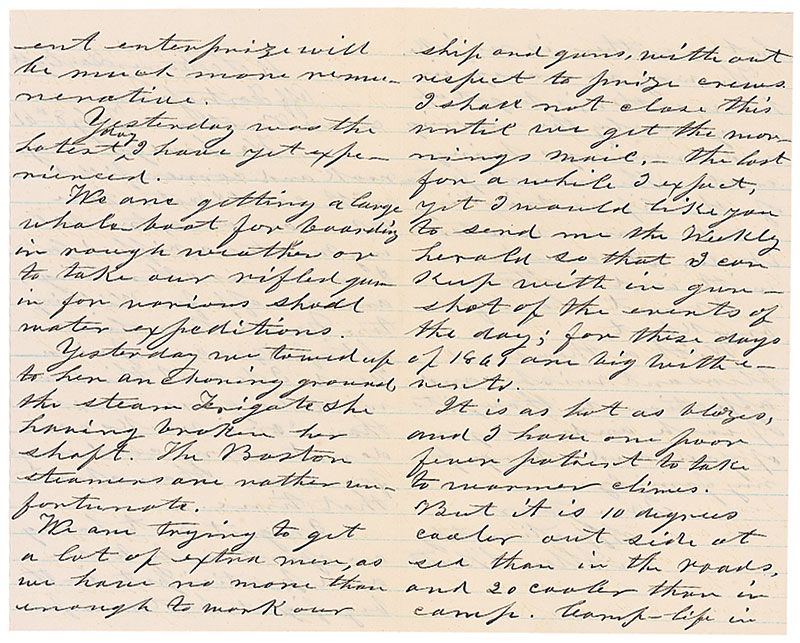 ent enterprize will
be much more remu-
nerative.
Yesterday was the
hotest day I have yet expe-
rienced.
We are getting a large
whale boat for boarding
in rough weather or
to take our rifled gun
in for various shoal
water expeditions.
Yesterday we towed up
to her anchoring ground
the steam Frigate She
having broken her
shaft. The Boston
steamers are rather un-
fortunate.
We are trying to get
a lot of extra men, as
we have no more than
enough to work our
ship and guns, without
respect to prize crews.
I shall not close this
until we get the mor-
nings mail, – the last
for a while I expect,
yet I would like you
to send me the Weekly
Herald so that I can
keep with in gun-
shot of the events of
the day; for these days
of 1861 are big with e-
vents.
It is as hot as blazes,
and I have one poor
fever patient to take
to warmer climes.
But it is 10 degrees
cooler out side at
sea than in the roads,
and 20 cooler than in
camp. Camp-life in